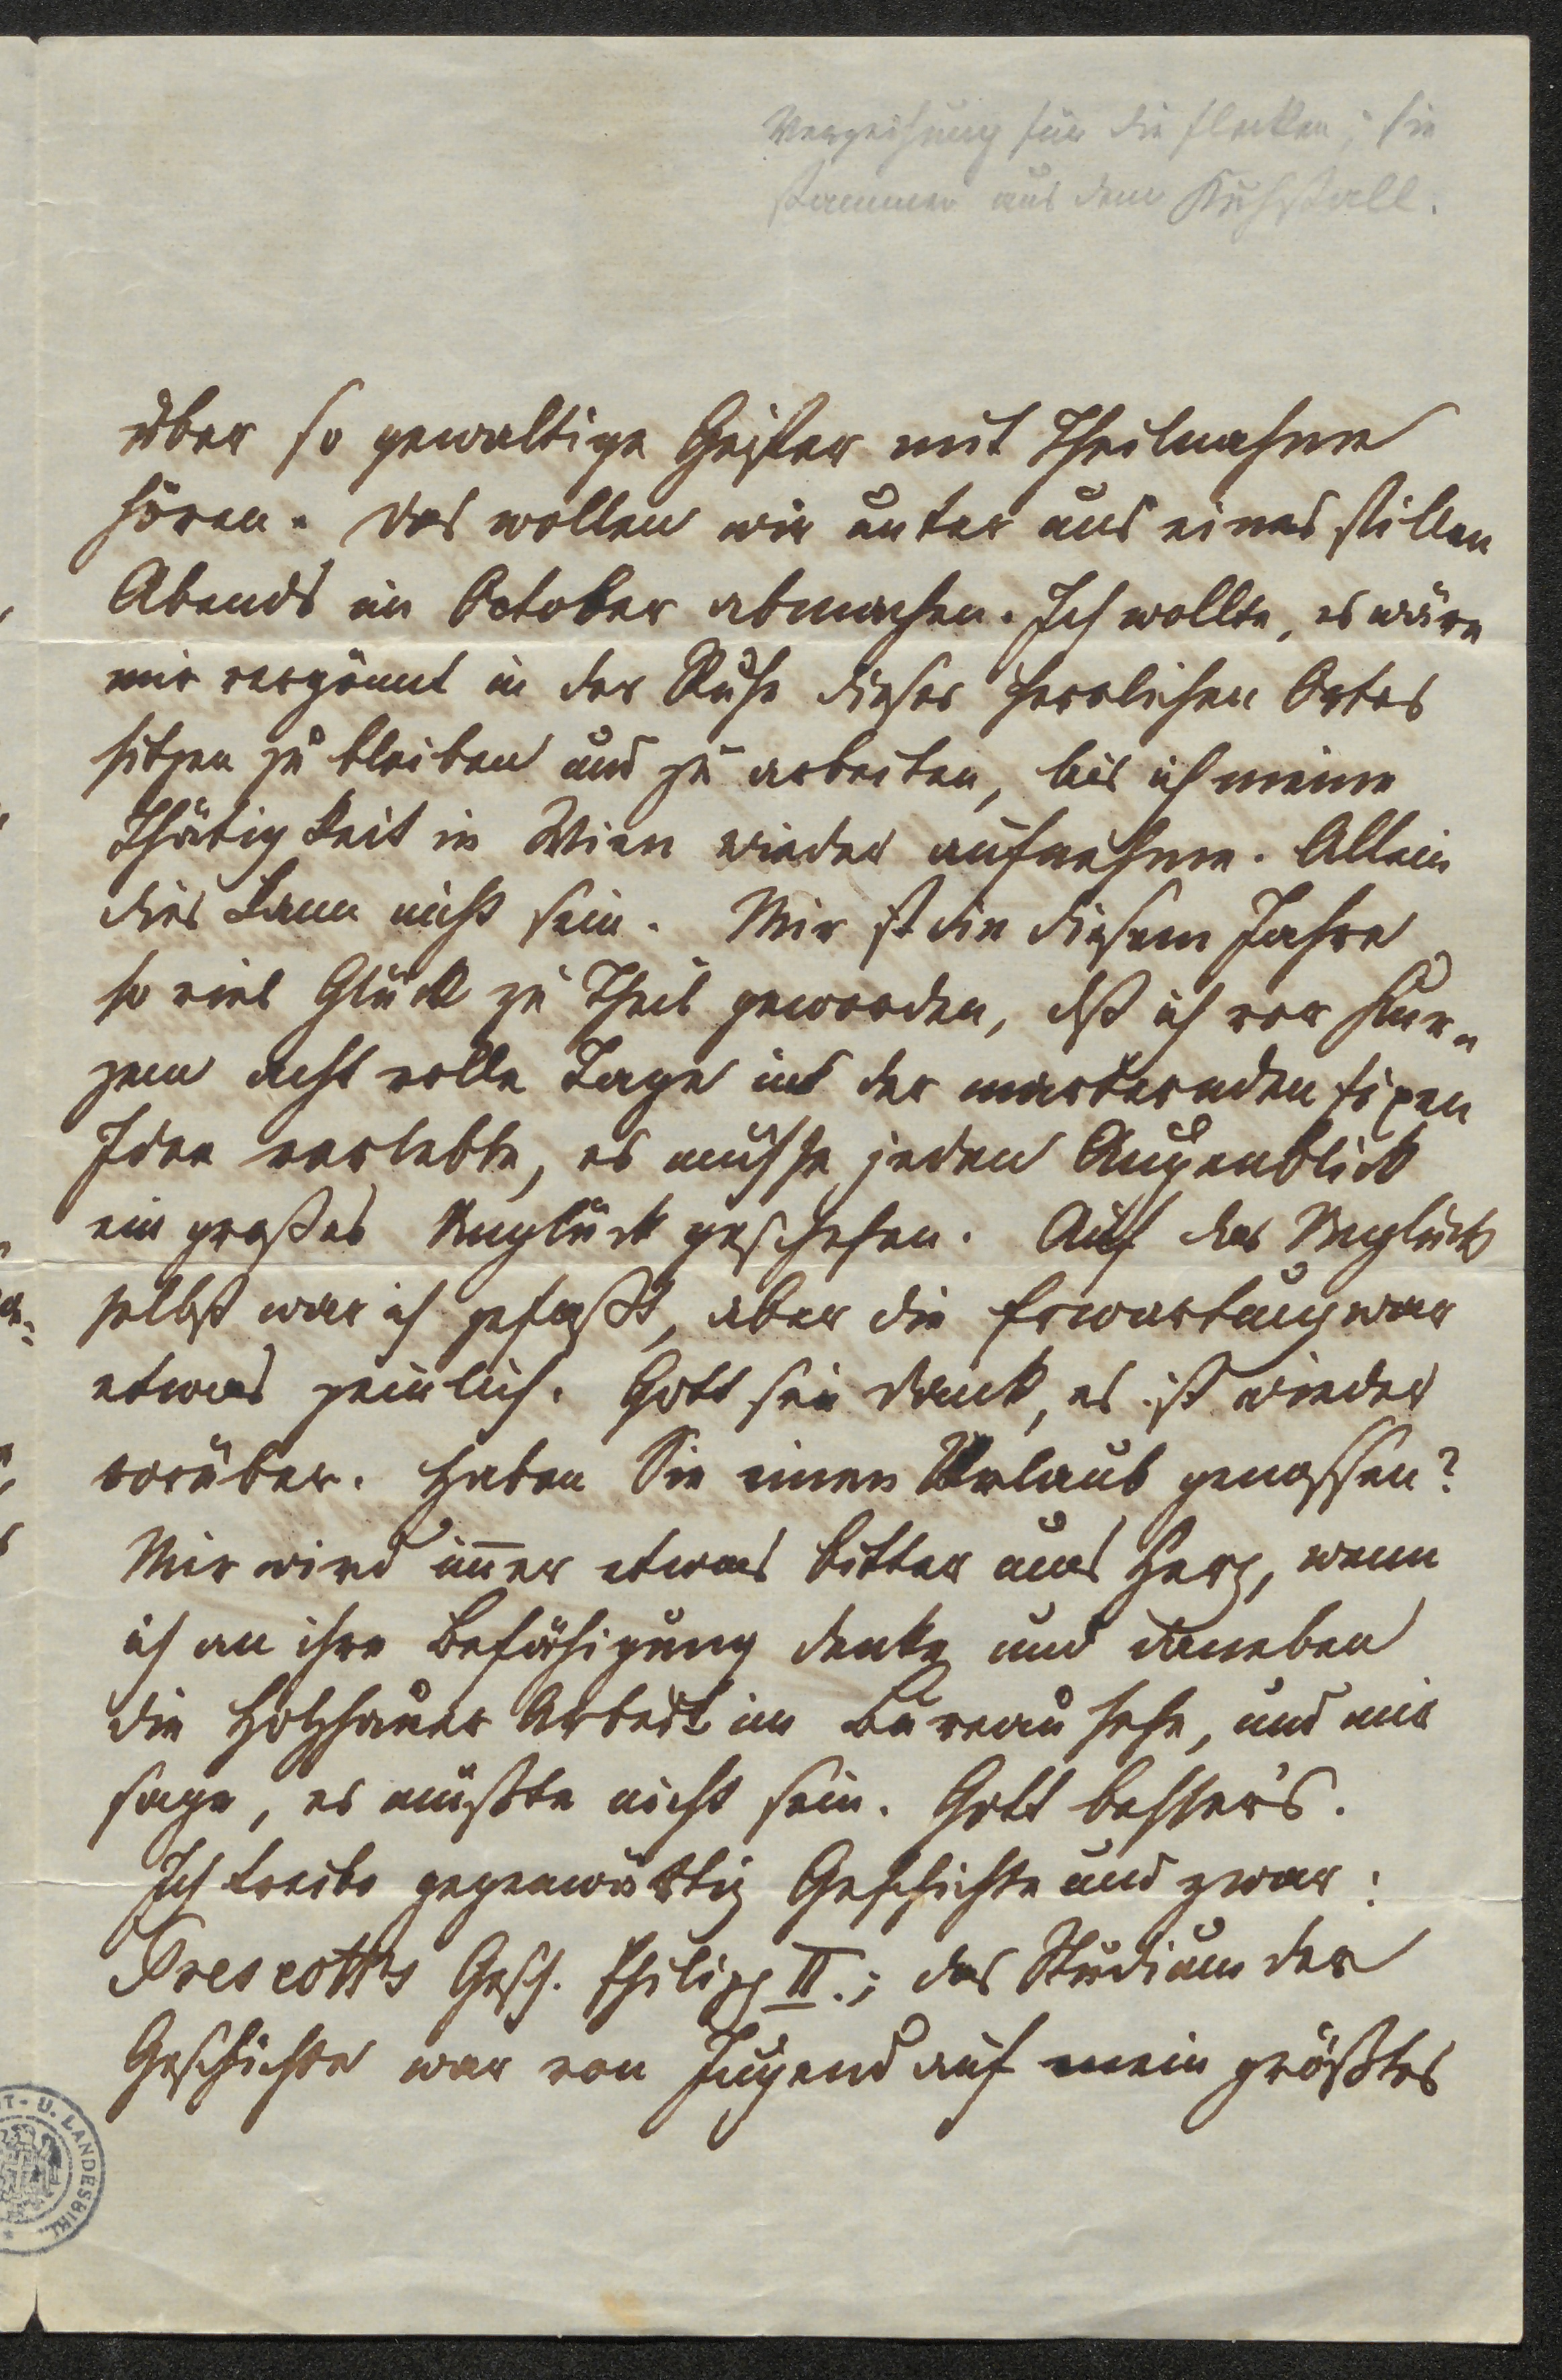 Verzeihung für die Flecken; sie
stammen aus dem Kuhstall.
über so gewaltige Geister mit Theilnahme
hören. Das wollen wir unter uns eines stillen
Abends im October abmachen. Ich wollte, es wäre
mir vergönnt in der Ruhe dieses herrlichen Ortes
sitzen zu bleiben und zu arbeiten, bis ich meine
Thätigkeit in Wien wieder aufnehme. Allein
dies kann nicht sein. Mir ist in diesem Jahre
so viel Glück zu Theil geworden, dß ich vor Kur-
zem acht volle Tage in der marternden fixen
Idee verlebte, es müsse jeden Augenblick
ein großes Unglück geschehen. Auf das Unglück
selbst war ich gefaßt, aber die Erwartung war
etwas peinlich. Gott sei Dank, es ist wieder
vorüber. Haben Sie einen Urlaub genossen?
Mir wird im̄er etwas bitter ums Herz, wenn
ich an ihre Befähigung denke und daneben
die Holzhauer Arbeit im Bureau sehe, und mir
sage, es müßte nicht sein. Gott besser's.
Ich treibe gegenwärtig Geschichte und zwar:
Prescott's Gesch. Philipp II.; das Studium der
Geschichte war von Jugend auf mein größtes
U. LANDESBIBL.